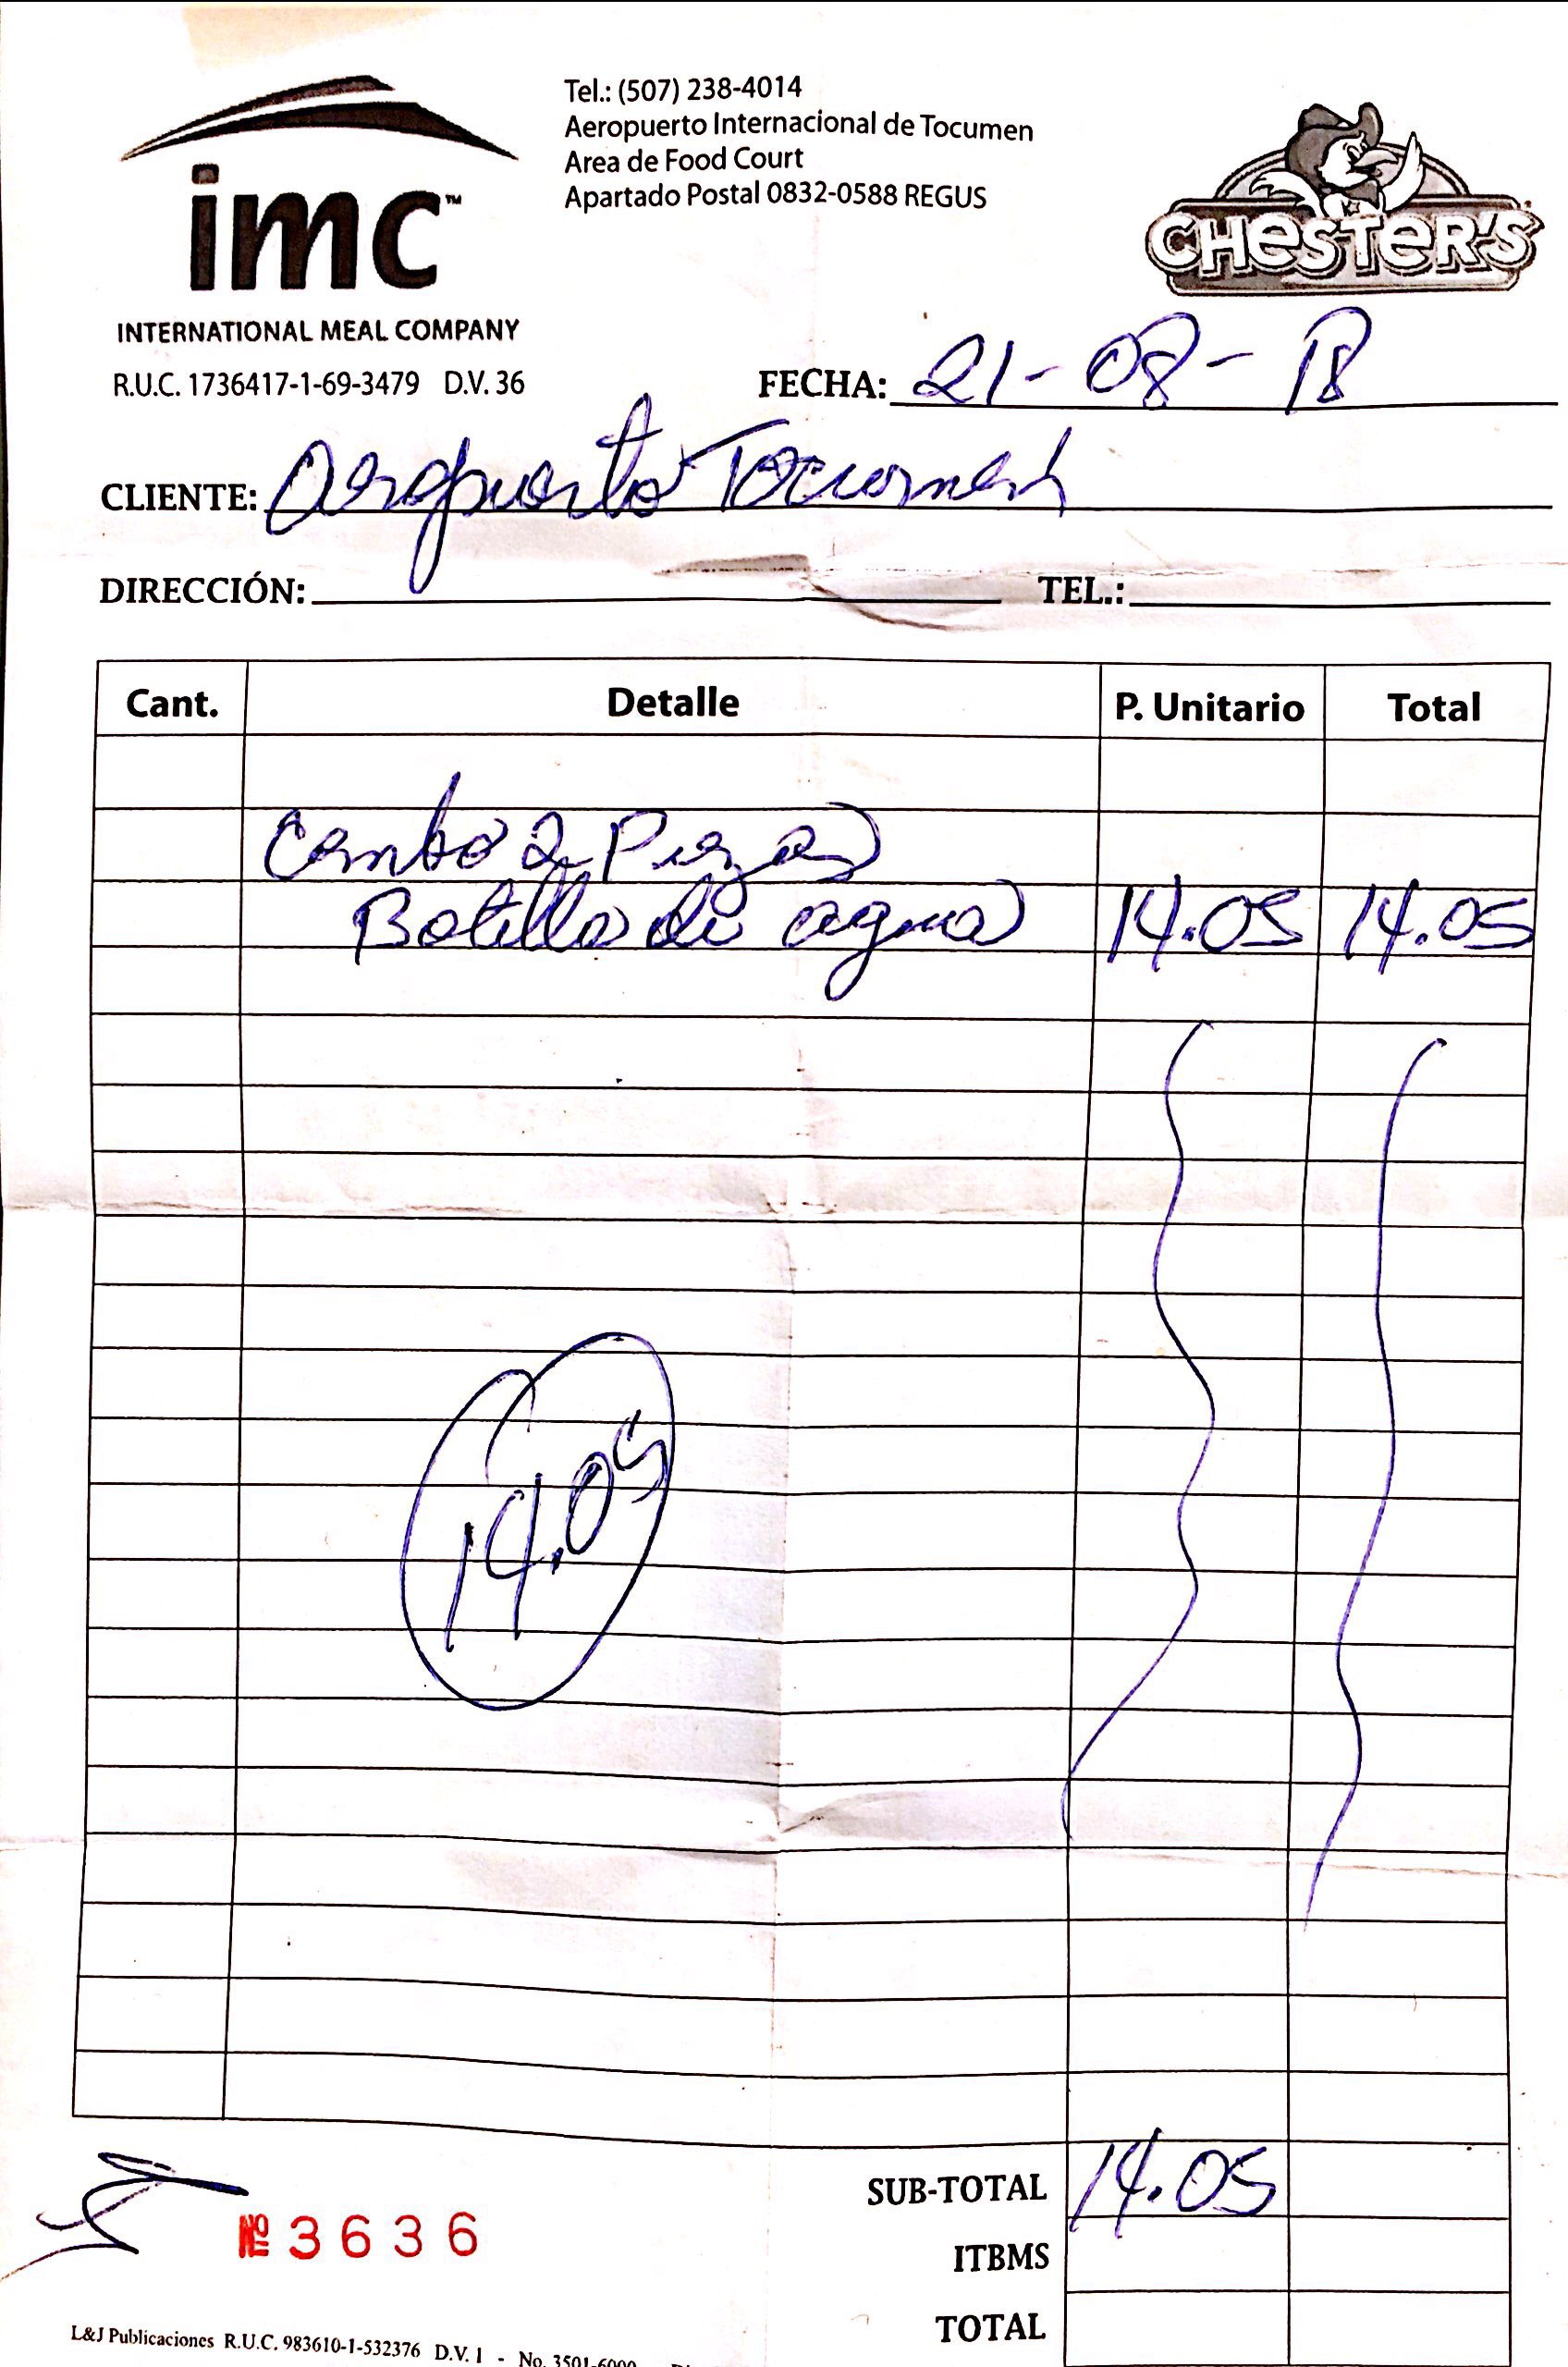 imc™
INTERNATIONAL MEAL COMPANY
R.U.C. 1736417-1-69-3479 D.V. 36
Tel.: (507) 238-4014
Aeropuerto Internacional de Tocumen
Area de Food Court
Apartado Postal 0832-0588 REGUS
CHESTER'S
FECHA: 21-08-18
CLIENTE: Aeropuerto Tocumen
DIRECCIÓN: TEL.:
Cant. Detalle P. Unitario Total
Combo 2 Piezas
Botella de agua 14.05 14.05
14.05
SUB-TOTAL 14.05
Nº 3636
ITBMS
TOTAL
L&J Publicaciones R.U.C. 983610-1-532376 D.V. 1 - No. 3501-6000